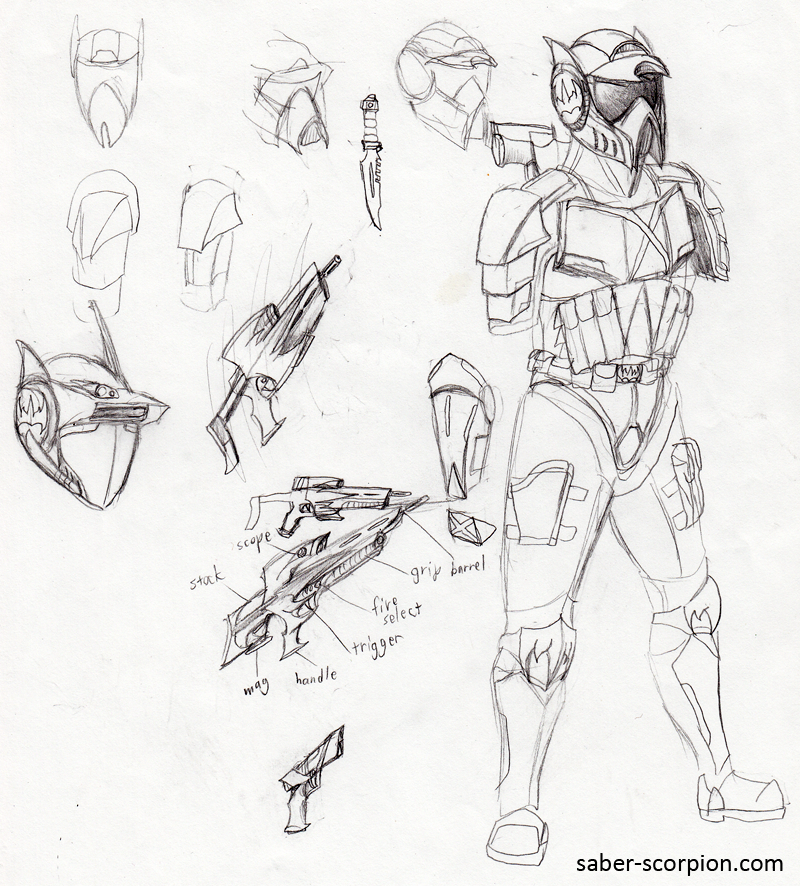 scope
stock
grip
barrel
fire
select
trigger
mag
handle
saber-scorpion.com